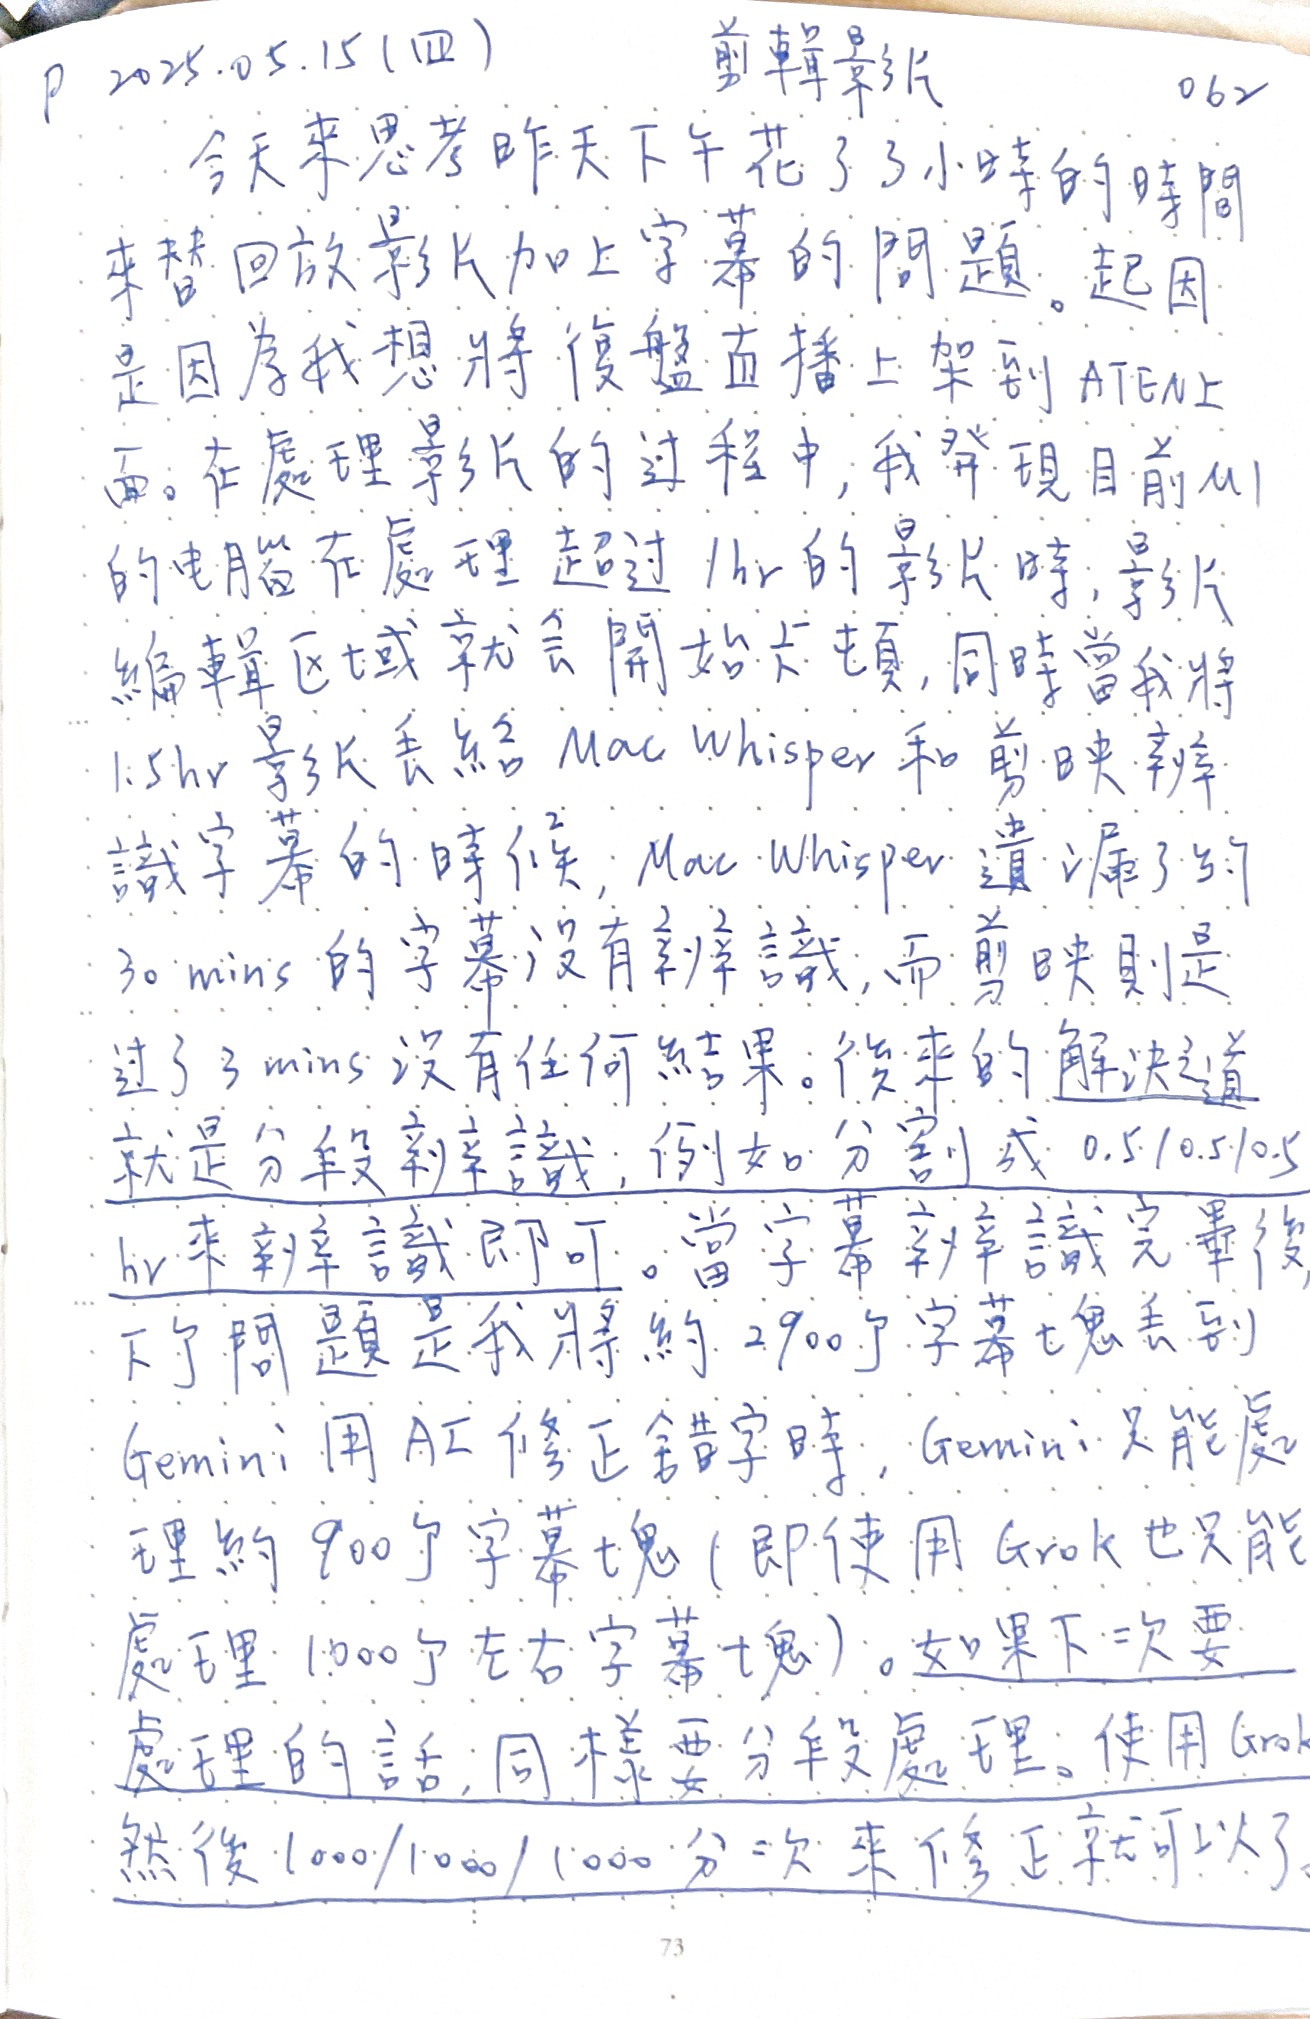 P 2025.05.15(四) 剪輯影片 062
今天來思考昨天下午花了3小時的時間
來替回放影片加上字幕的問題。起因
是因為我想將復盤直播上架到ATEN上
面。在處理影片的过程中,我發現目前M1
的电腦在處理超过1hr的影片時,影片
編輯区域就会開始卡頓,同時當我將
1.5hr影片丢給Mac Whisper和剪映辨
識字幕的時候,Mac Whisper遺漏了約
30mins的字幕没有辨識,而剪映則是
过了3mins没有任何結果。後來的解決之道
就是分段辨識,例如分割成0.5/0.5/0.5
hr來辨識即可。當字幕辨識完畢後,
下个問題是我將約2900个字幕塊丢到
Gemini用AI修正錯字時,Gemini只能處
理約900个字幕塊(即使用Grok也只能
處理1000个左右字幕塊)。如果下二次要
處理的話,同樣要分段處理。使用Grok
然後1000/1000/1000分二次來修正就可以了。
73